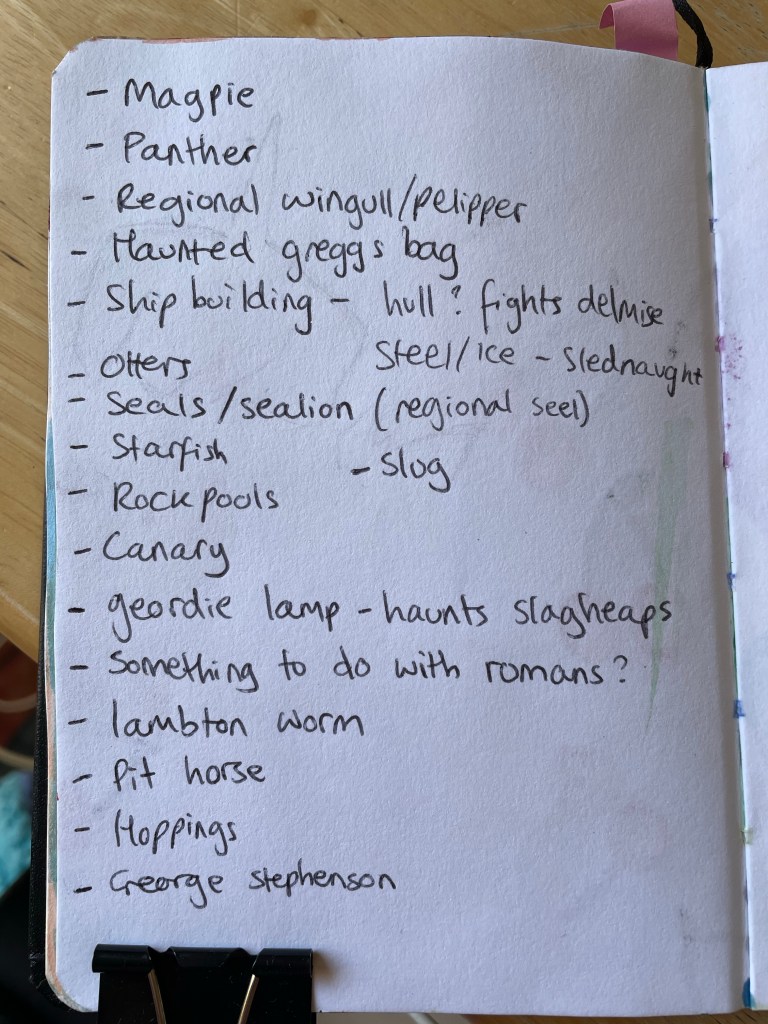 - Magpie
- Panther
- Regional wingull/pelipper
- Haunted greggs bag
- Ship building - hull? fights delmise
Steel/ice - Slednaught
- Otters
- Seals/sealion (regional seel)
- Starfish
- Slug
- Rockpools
- Canary
- geordie lamp - haunts slagheaps
- Something to do with romans?
- lambton worm
- Pit horse
- Hoppings
- George stephenson